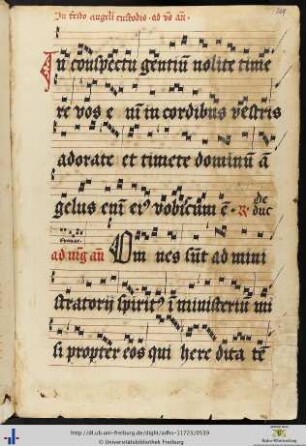 In festo angeli custodis · ad v̄s añ ·
In conspectu gentiū nolite time
re vos e nı̄ in cordibus vestris
adorate et timete dominū ā
gelus enı̄ eiꝰ vobiscum ē · R̷ de
duc
ad m̄g añ Om nes sūt ad mini
stratorij spiritꝰ ī ministeriū mi
si propter eos qui here dita tē
http://dl.ub.uni-freiburg.de/diglit/adhs-11723/0539
© Universitätsbibliothek Freiburg